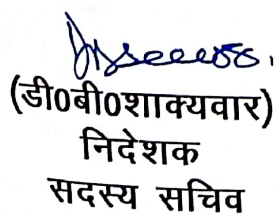 (डी0बी0शाक्यवार)
निदेशक
सदस्य सचिव